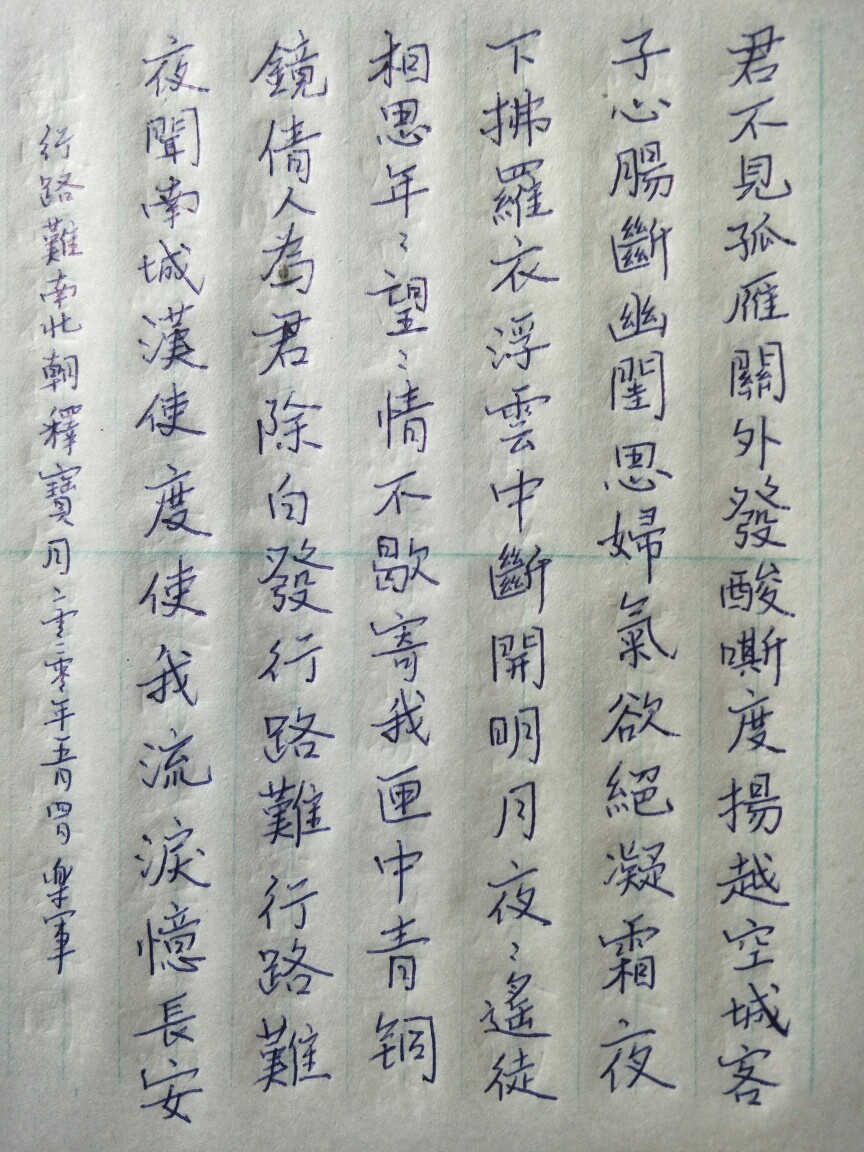 君不見孤雁關外發酸嘶度揚越空城客
子心腸斷幽閨思婦氣欲絕凝霜夜
下拂羅衣浮雲中斷開明月夜〻遙徒
相思年〻望〻情不歇寄我匣中青銅
鏡倩人為君除白發行路難行路難
夜聞南城漢使度使我流淚憶長安
行路難南北朝釋寶月二零二零年五月四日樂軍